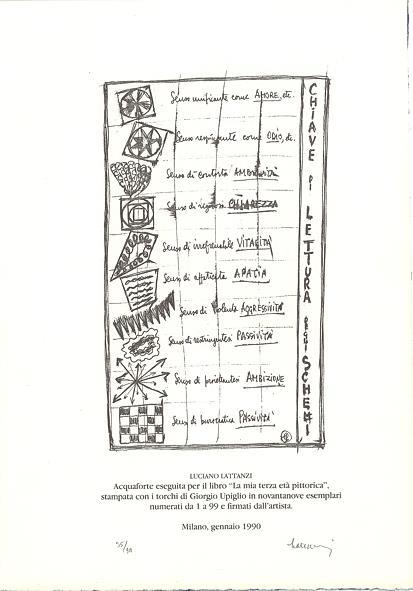 Senso unificante come AMORE, etc.
Senso respingente come ODIO, etc.
Senso di contorta AMBIGUITÀ
Senso di rigorosa CHIAREZZA
Senso di irrefrenabile VITALITÀ
Senso di affaticata APATIA
Senso di violenta AGGRESSIVITÀ
Senso di restringentesi PASSIVITÀ
Senso di proiettantesi AMBIZIONE
Senso di burocratica PASSIVITÀ
CHIAVE DI LETTURA DEGLI SCHEMI
LUCIANO LATTANZI
Acquaforte eseguita per il libro "La mia terza età pittorica",
stampata con i torchi di Giorgio Upiglio in novantanove esemplari
numerati da 1 a 99 e firmati dall'artista.
Milano, gennaio 1990